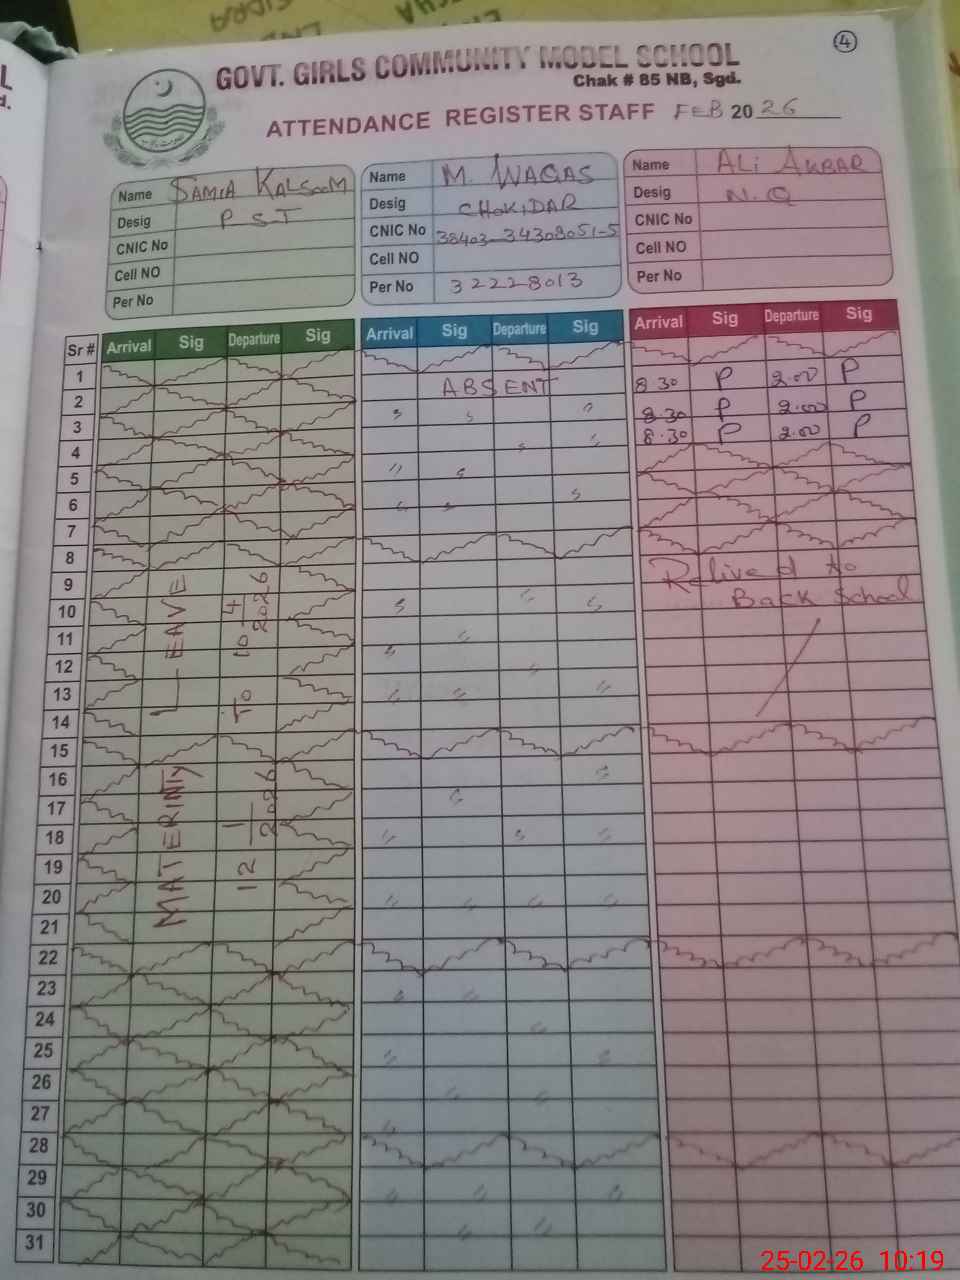 4
GOVT. GIRLS COMMUNITY MODEL SCHOOL
Chak # 85 NB, Sgd.
ATTENDANCE REGISTER STAFF FEB 2026
Name SAMIA KALSOOM
Desig P S T
CNIC No
Cell NO
Per No
Name M. WAQAS
Desig CHOKIDAR
CNIC No 38403-34308051-5
Cell NO
Per No 32228013
Name ALI AKBAR
Desig N.Q
CNIC No
Cell NO
Per No
Sr # Arrival Sig Departure Sig Arrival Sig Departure Sig Arrival Sig Departure Sig
1
2 ABSENT 8.30 P 2.00 P
3 8.30 P 2.00 P
4 8.30 P 2.00 P
5
6
7
8
9 Relived to
10 Back School
11
12
13
14
15
16
17
18
19
20
21
22
23
24
25
26
27
28
29
30
31
MATERINTY LEAVE
12 1 2026 To 10 4 2026
25-02-26 10:19